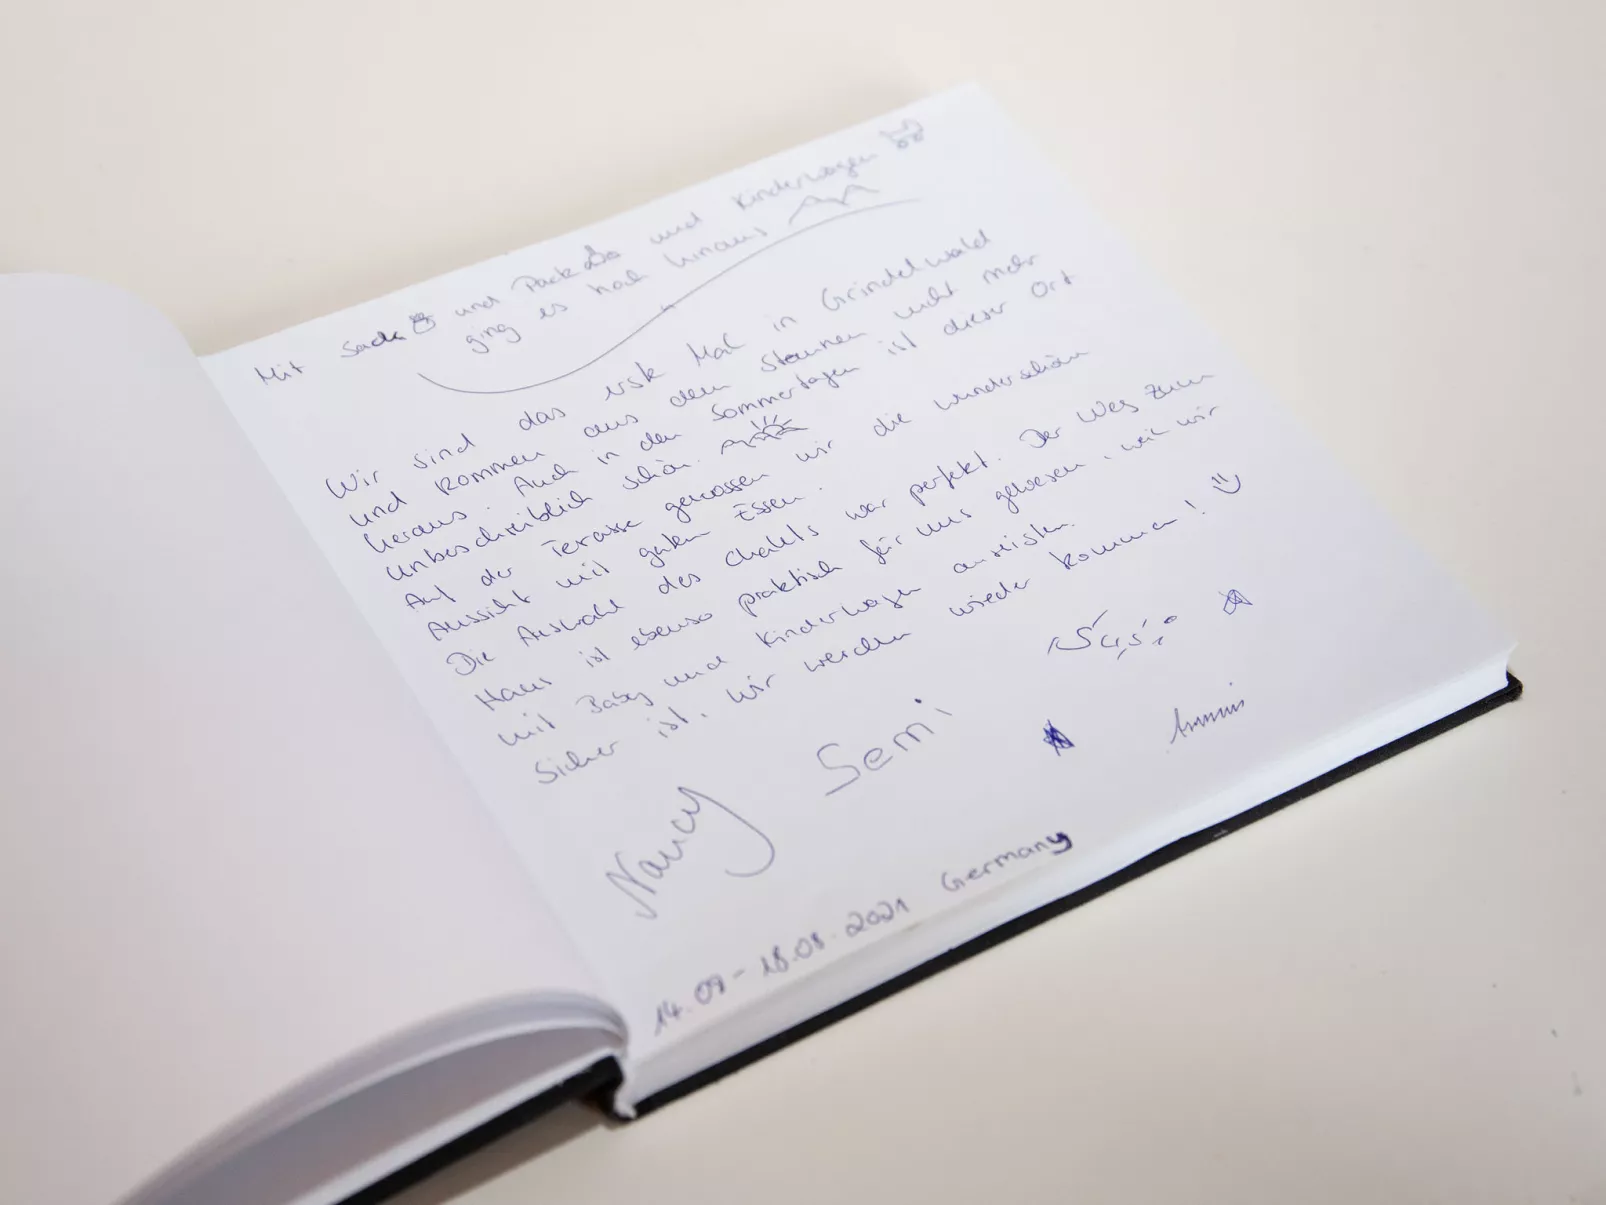 Mit Sack und Pack und Kinderwagen
ging es hoch hinaus
Wir sind das erste Mal in Grindelwald
und kommen aus dem Staunen nicht mehr
heraus. Auch in den Sommertagen ist dieser Ort
unbeschreiblich schön.
Auf der Terasse genossen wir die wunderschöne
Aussicht mit gutem Essen.
Die Auswahl des Chalets war perfekt. Der Weg zum
Haus ist ebenso praktisch für uns gewesen, weil wir
mit Baby und Kinderwagen anreisten.
Sicher ist, wir werden wieder kommen! :)
Nancy Semi
14.08 - 18.08.2021 Germany